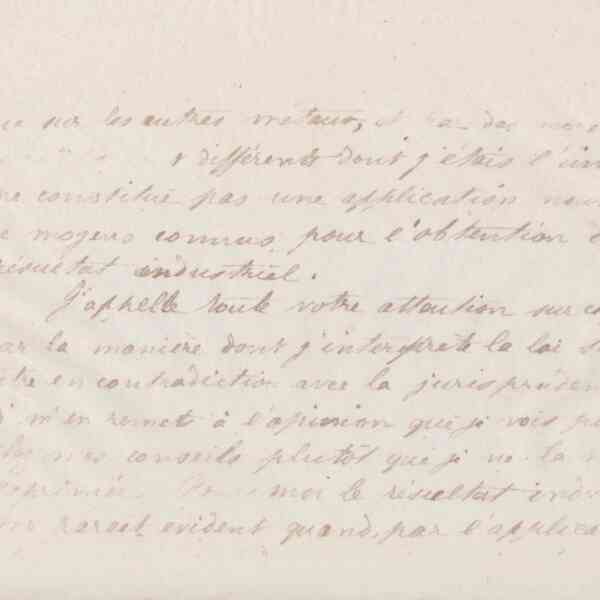 sur les autres métaux, et par des
différents dont j'étais l'in
ne constitue pas une application nou
moyens connus pour l'obtention d
résultat industriel.
J'appelle toute votre attention sur ce
par la manière dont j'interprète la loi
être en contradiction avec la jurispruden
m'en remet à l'opinion que je vois
mes conseils plutôt que je ne la
exprimée. Pour moi le résultat indu
évident quand, par l'applica